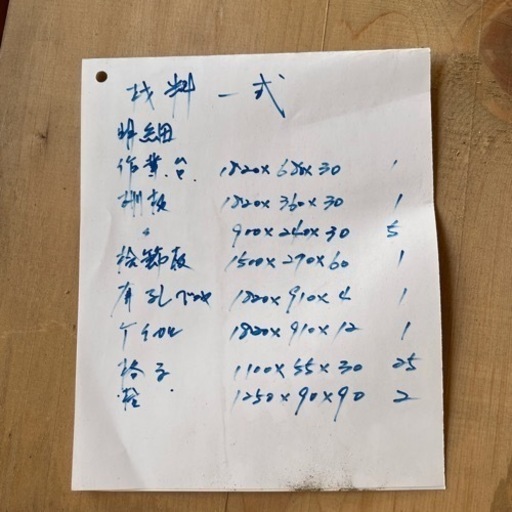 材料 一式
明細
作業台 1820×680×30 1
棚板 1820×360×30 1
〃 900×240×30 5
桧節板 1500×290×60 1
有孔ベニヤ 1820×910×4 1
1820×910×12 1
格子 1100×55×30 25
桧 1250×90×90 2